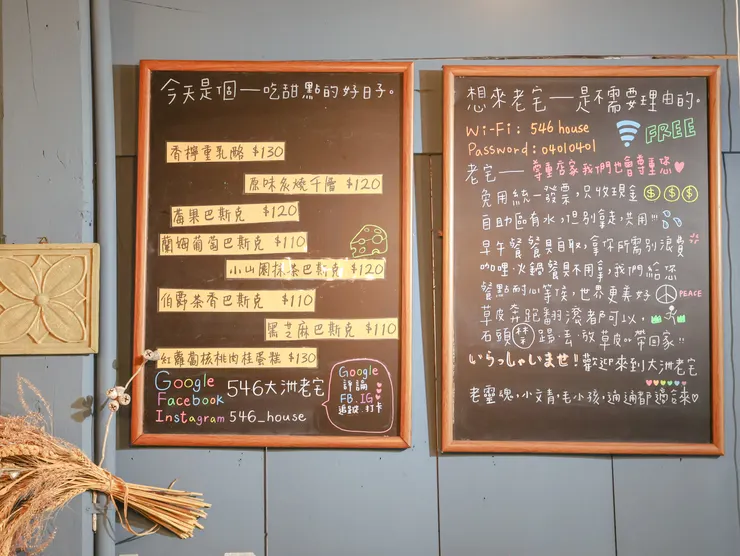 今天是個一吃甜點的好日子。
香檸重乳酪 $130
原味炙燒千層 $120
莓果巴斯克 $120
蘭姆葡萄巴斯克 $110
小山園抹茶巴斯克 $120
伯爵茶香巴斯克 $110
黑芝麻巴斯克 $110
紅蘿蔔核桃肉桂蛋糕 $130
Google
Facebook
546大洲老宅
Instagram 546_house
Google
評論
FB.IG
追蹤.打卡
想來老宅一是不需要理由的。
Wi-Fi: 546 house
Password: 04010401
FREE
老宅一 尊重店家我們也會尊重您
免用統一發票,只收現金 $ $ $
自助區有水,但別拿走,共用!!!
早午餐餐具自取,拿你所需別浪費
咖哩.火鍋餐具不用拿,我們給您
餐點耐心等候,世界更美好 PEACE
草皮奔跑翻滾都可以,
石頭 踢去放草皮 帶回家!!
いらっしゃいませ!!歡迎來到大洲老宅
老靈魂,小文青,毛小孩,通通都適合來